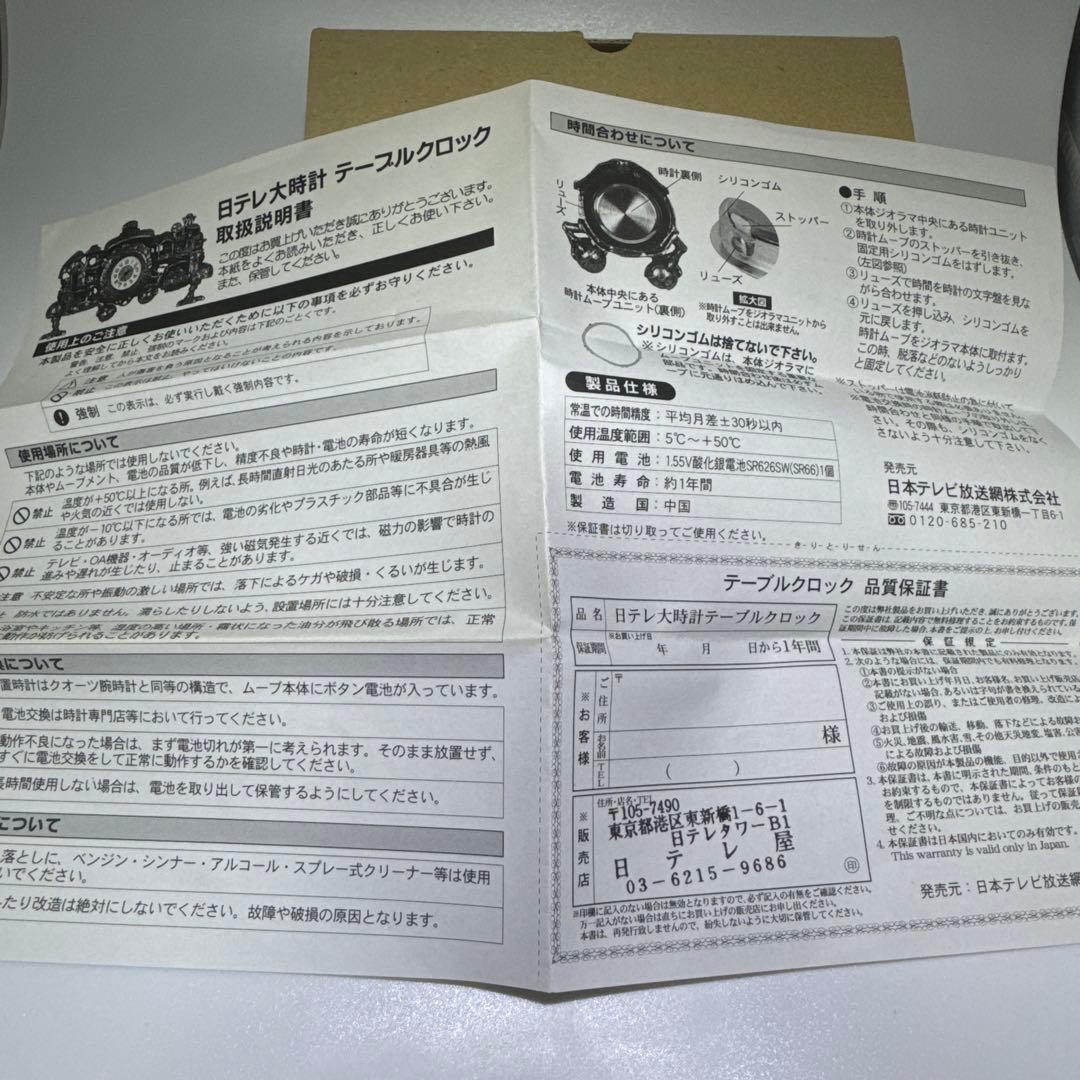 日テレ大時計 テーブルクロック
取扱説明書
この度はお買上げいただき誠にありがとうございます。
本紙をよくお読みいただき、正しくお使い下さい。
また、保管してください。
使用上のご注意
本製品を安全に正しくお使いいただくために以下の事項を必ずお守りください。
警告、注意、禁止、強制のマークおよび内容は下記のごとくです。
よく理解してから本文をお読みください。
注意 人が傷害を負う原因となることが考えられる内容を示しております。
禁止 この表示は禁止、やってはいけないことの内容です。
強制 この表示は、必ず実行し戴く強制内容です。
使用場所について
下記のような場所では使用しないでください。
本体やムーブメント、電池の品質が低下し、精度不良や時計・電池の寿命が短くなります。
禁止 温度が+50℃以上になる所。例えば、長時間直射日光のあたる所や暖房器具等の熱風
や火気の近くでは使用しない。
禁止 温度が−10℃以下になる所では、電池の劣化やプラスチック部品等に不具合が生じ
ることがあります。
禁止 テレビ・OA機器・オーディオ等、強い磁気発生する近くでは、磁力の影響で時計の
進みや遅れが生じたり、止まることがあります。
注意 不安定な所や振動の激しい場所では、落下によるケガや破損・くるいが生じます。
防水ではありません。濡らしたりしないよう、設置場所には十分注意してください。
浴室やキッチン等、湿度の高い場所・霧状になった油分が飛び散る場所では、正常
な動作が妨げられることがあります。
について
置時計はクオーツ腕時計と同等の構造で、ムーブ本体にボタン電池が入っています。
電池交換は時計専門店等において行ってください。
動作不良になった場合は、まず電池切れが第一に考えられます。そのまま放置せず、
すぐに電池交換をして正常に動作するかを確認してください。
長時間使用しない場合は、電池を取り出して保管するようにしてください。
について
落としに、ベンジン・シンナー・アルコール・スプレー式クリーナー等は使用
いでください。
たり改造は絶対にしないでください。故障や破損の原因となります。
時間合わせについて
リューズ
時計裏側
シリコンゴム
ストッパー
リューズ
拡大図
本体中央にある
時計ムーブユニット(裏側)
※時計ムーブをジオラマユニットから
取り外すことは出来ません。
シリコンゴムは捨てないで下さい。
※シリコンゴムは、本体ジオラマに
●手 順
①本体ジオラマ中央にある時計ユニット
を取り外します。
②時計ムーブのストッパーを引き抜き、
固定用シリコンゴムをはずします。
(左図参照)
③リューズで時間を時計の文字盤を見な
がら合わせます。
④リューズを押し込み、シリコンゴムを
元に戻します。
時計ムーブをジオラマ本体に取付ます。
この時、脱落などのないようしっかり
と固定してください。
さい。その際も、シリコンゴムをなく
さないよう十分注意して下さい。
製品仕様
常温での時間精度：平均月差±30秒以内
使用温度範囲：5℃〜+50℃
使用電池：1.55V酸化銀電池SR626SW(SR66)1個
電池寿命：約1年間
製造国：中国
※保証書は切り取ってご使用ください。
発売元
日本テレビ放送網株式会社
〒105-7444 東京都港区東新橋一丁目6-1
0120-685-210
き・り・と・り・せ・ん
テーブルクロック 品質保証書
品名 日テレ大時計テーブルクロック
保証期間 ※お買い上げ日 年 月 日から1年間
※お客様
ご住所 〒
お名前 様
TEL ( )
※販売店
住所・店名・TEL
〒105-7490
東京都港区東新橋1-6-1
日テレタワーB1
日テレ屋
03-6215-9686
印
※印欄に記入のない場合は無効となりますので、必ず記入の有無をご確認ください。
万一記入がない場合は直ちにお買い上げの販売店にお申し出ください。
本書は、再発行致しませんので、紛失しないように大切に保管してください。
この度は弊社製品をお買い上げいただき、誠にありがとうございます。
この保証書は、記載内容で無料修理することをお約束するものです。保
証期間中に故障した場合、本書をご提示の上、お申し付けください。
保証規定
1. 本保証は弊社の本書に記載された製品にのみ有効となります。
2. 次のような場合には、保証期間内でも有料修理となります。
①本書の提示がない場合
②本書にお買い上げ年月日、お客様名、お買い上げ販売店
記載がない場合、あるいは字句が書き換えられている
③ご使用上の誤り、またはご使用者の修理、改造によ
および損傷
④お買上げ後の輸送、移動、落下などによる故障お
⑤火災、地震、風水害、雪、その他天災地変、塩害、公害
による故障および損傷
⑥故障の原因が本製品の機能、目的以外で使用
3. 本保証書は、本書に明示された期間、条件のもと
お約束するもので、本保証書によってお客様の
を制限するものではありません。従って保証
理、ご不明な点については、お買上げの販売
せください。
4. 本保証書は日本国内においてのみ有効です。
This warranty is valid only in Japan.
発売元：日本テレビ放送網